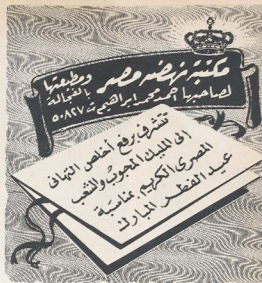 مكتبة نهضة مصر ومطبعتها بالفجالة
لصاحبها احمد محمد ابراهيم ت ٥٠٨٢٧
تتشرف برفع أخلص التهانى
إلى المليك المحبوب والشعب
المصرى الكريم بمناسبة
عيد الفطر المبارك